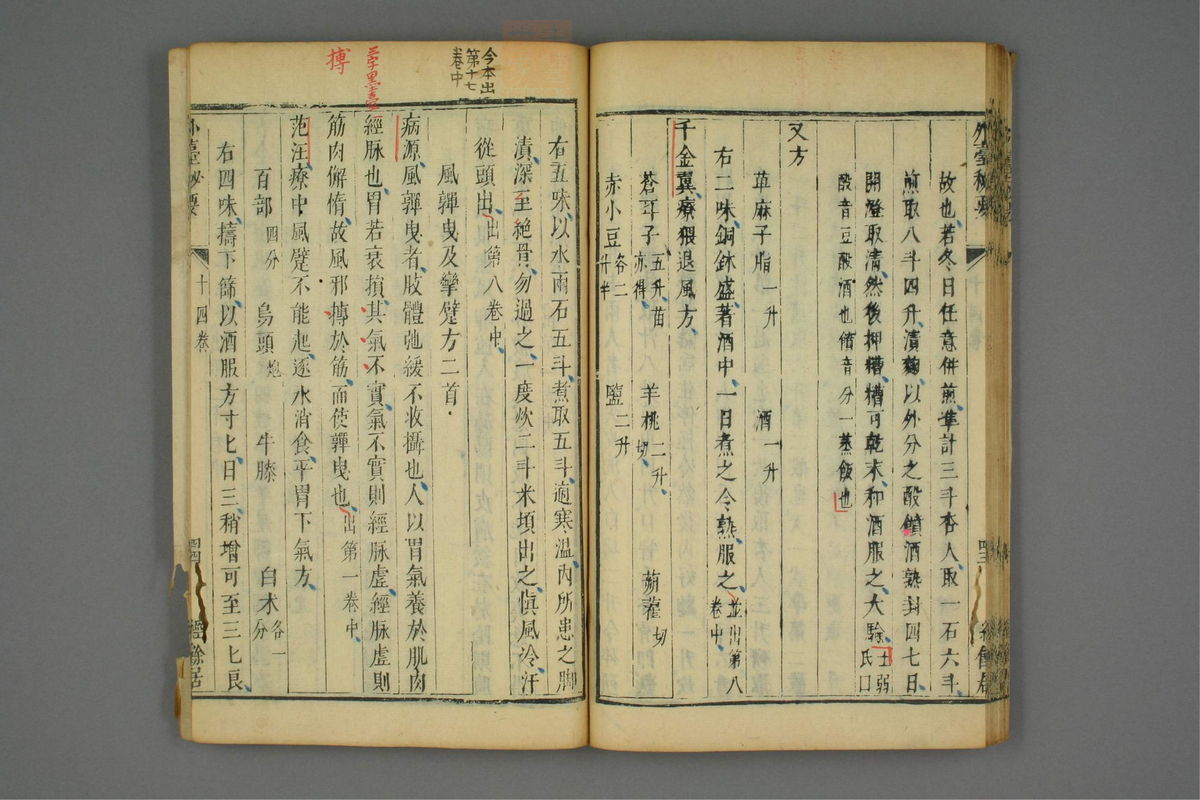 外臺秘要
故也若冬日任意併煎準計三斗杏人取一石六斗
煎取八斗四升漬麴以外分之酘饙酒熟封四七日
開澄取清然後押糟糟可乾末和酒服之大驗士弱氏口
酘音豆酘酒也饙音分一蒸飯也
又方
萆麻子脂一升 酒一升
右二味銅鉢盛著酒中一日煮之令熟服之並出第八卷中
千金翼療猥退風方
蒼耳子五升苗亦得 羊桃二升切 蒴藋切
赤小豆各二升半 鹽二升
右五味以水兩石五斗煮取五斗適寒溫內所患之脚
漬深至絕骨勿過之一度炊二斗米頃出之慎風冷汗
從頭出出第八卷中
風嚲曳及攣躄方二首
病源風嚲曳者肢體弛緩不收攝也人以胃氣養於肌肉
經脉也胃若衰損其氣不實氣不實則經脉虛經脉虛則
筋肉懈惰故風邪搏於筋而使嚲曳也出第一卷中
范汪療中風躄不能起逐水消食平胃下氣方
百部四分 烏頭炮 牛膝 白朮各一分
右四味擣下篩以酒服方寸匕日三稍增可至三匕良
外臺祕要 十四卷 經餘居
今本出
第十七
卷中
搏